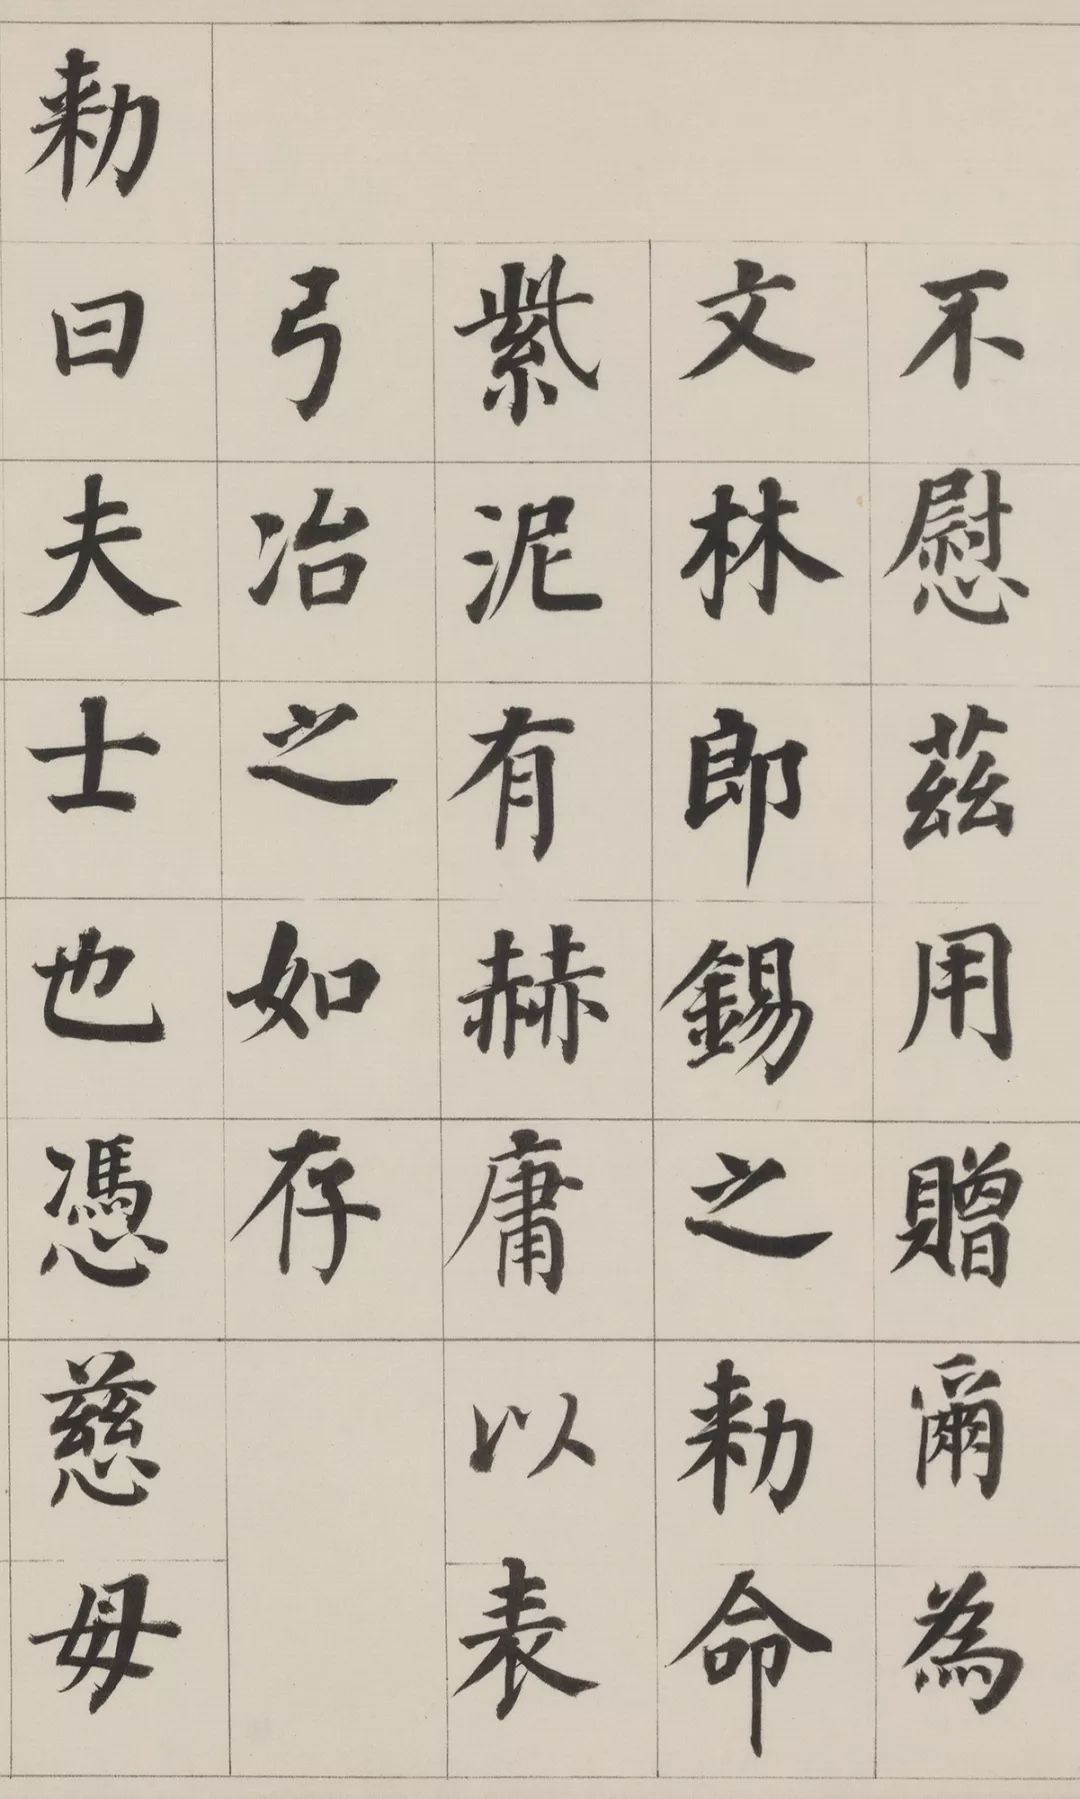 不慰茲用贈爾為
文林郎錫之勑命
紫泥有赫庸以表
弓冶之如存
勑曰夫士也憑慈母